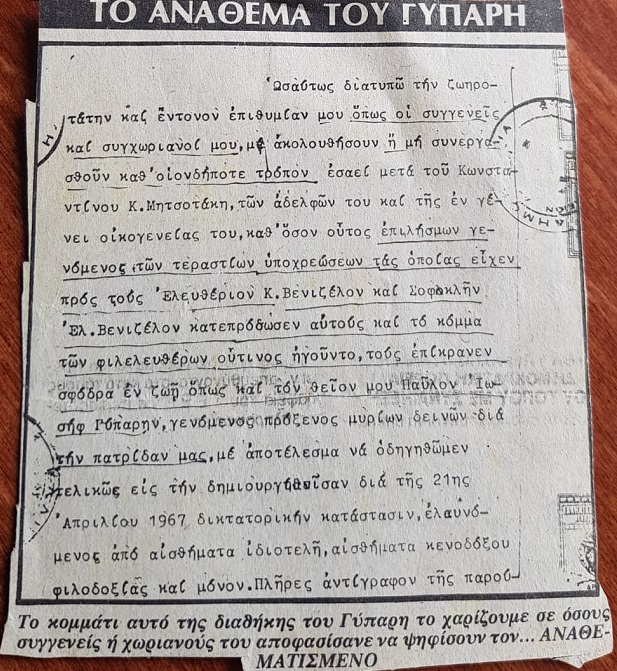 ΤΟ ΑΝΑΘΕΜΑ ΤΟΥ ΓΥΠΑΡΗ
Ὡσαύτως διατυπῶ τήν ζωηρο-
τάτην καί ἔντονον ἐπιθυμίαν μου ὅπως οἱ συγγενεῖς
καί συγχωριανοί μου, μή ἀκολουθήσουν ἤ μή συνεργα-
σθοῦν καθ'οἱονδήποτε τρόπον ἐσαεί μετά τοῦ Κωνστα-
ντίνου Κ.Μητσοτάκη, τῶν ἀδελφῶν του καί τῆς ἐν γέ-
νει οἰκογενείας του, καθ'ὅσον οὗτος ἐπιλήσμων γε-
νόμενος τῶν τεραστίων ὑποχρεώσεων τάς ὁποίας εἶχεν
πρός τούς Ἐλευθέριον Κ.Βενιζέλον καί Σοφοκλῆν
Ἐλ.Βενιζέλον κατεπρόδωσεν αὐτούς καί τό κόμμα
τῶν φιλελευθέρων οὗτινος ἡγοῦντο, τούς ἐπίκρανεν
σφόδρα ἐν ζωῇ ὅπως καί τόν θεῖον μου Παῦλον Ἰω-
σήφ Γύπαρην, γενόμενος πρόξενος μυρίων δεινῶν διά
τήν πατρίδαν μας, μέ ἀποτέλεσμα νά ὁδηγηθῶμεν
τελικῶς εἰς τήν δημιουργηθεῖσαν διά τῆς 21ης
Ἀπριλίου 1967 δικτατορικήν κατάστασιν, ἐλαυνό-
μενος ἀπό αἰσθήματα ἰδιοτελῆ, αἰσθήματα κενοδόξου
φιλοδοξίας καί μόνον. Πλῆρες ἀντίγραφον τῆς παρού-
Το κομμάτι αυτό της διαθήκης του Γύπαρη το χαρίζουμε σε όσους
συγγενείς ή χωριανούς του αποφασίσανε να ψηφίσουν τον... ΑΝΑΘΕ-
ΜΑΤΙΣΜΕΝΟ